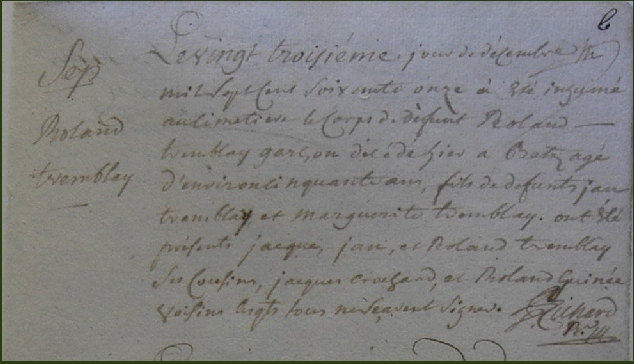 6
Sep
Roland
tremblay
Le vingt troisiéme jour de décembre
mil sept cent soixante onze à été inhumé
au cimetiere le Corps de défunt Roland
tremblay garçon décédé hier a agé
d'environ cinquante ans, fils de defunts jan
tremblay et marguerite tremblay. ont été
présents jacque, jan, et Roland tremblay
ses Cousins, jacques et Roland Guinée
voisins lesqls tous ne sçavent signer. Richard